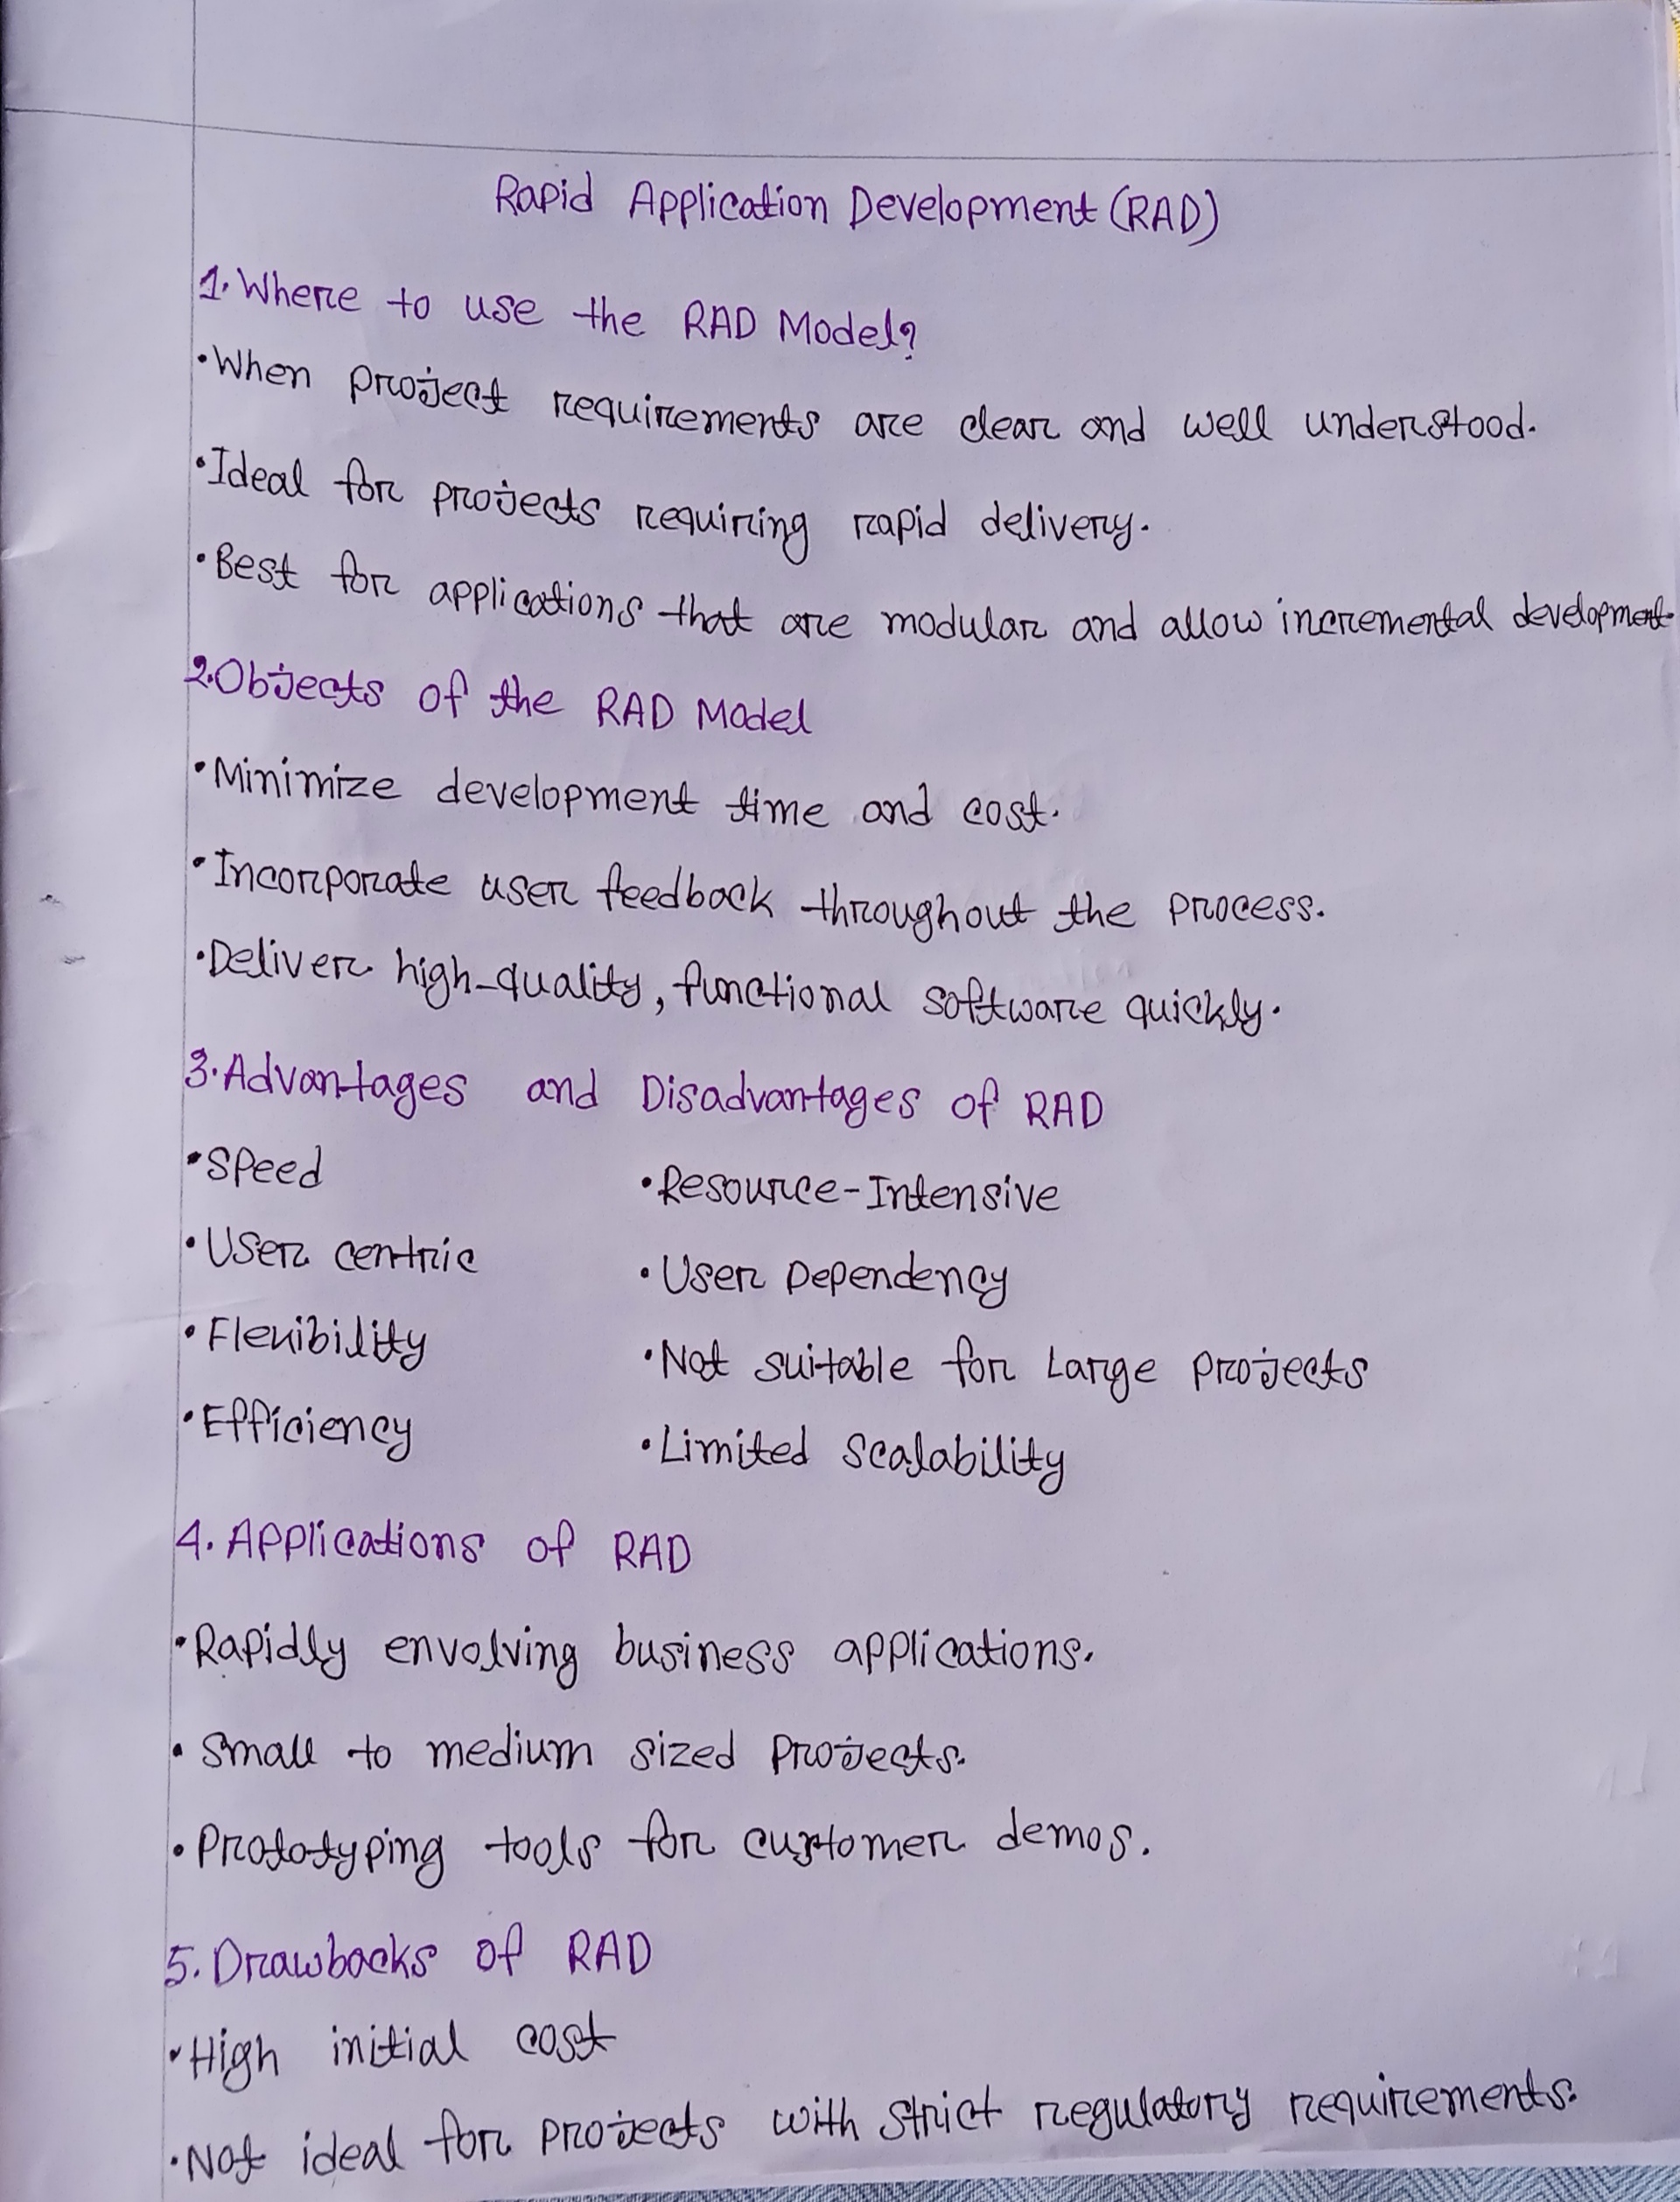 Rapid Application Development (RAD)
1. Where to use the RAD Model?
• When project requirements are clear and well understood.
• Ideal for projects requiring rapid delivery.
• Best for applications that are modular and allow incremental development.
2. Objects of the RAD Model
• Minimize development time and cost.
• Incorporate user feedback throughout the process.
• Deliver high-quality, functional software quickly.
3. Advantages and Disadvantages of RAD
• Speed
• Resource-Intensive
• User centric
• User Dependency
• Flexibility
• Not suitable for Large projects
• Efficiency
• Limited Scalability
4. Applications of RAD
• Rapidly envolving business applications.
• Small to medium sized projects.
• Prototyping tools for customer demos.
5. Drawbacks of RAD
• High initial cost
• Not ideal for projects with strict regulatory requirements.